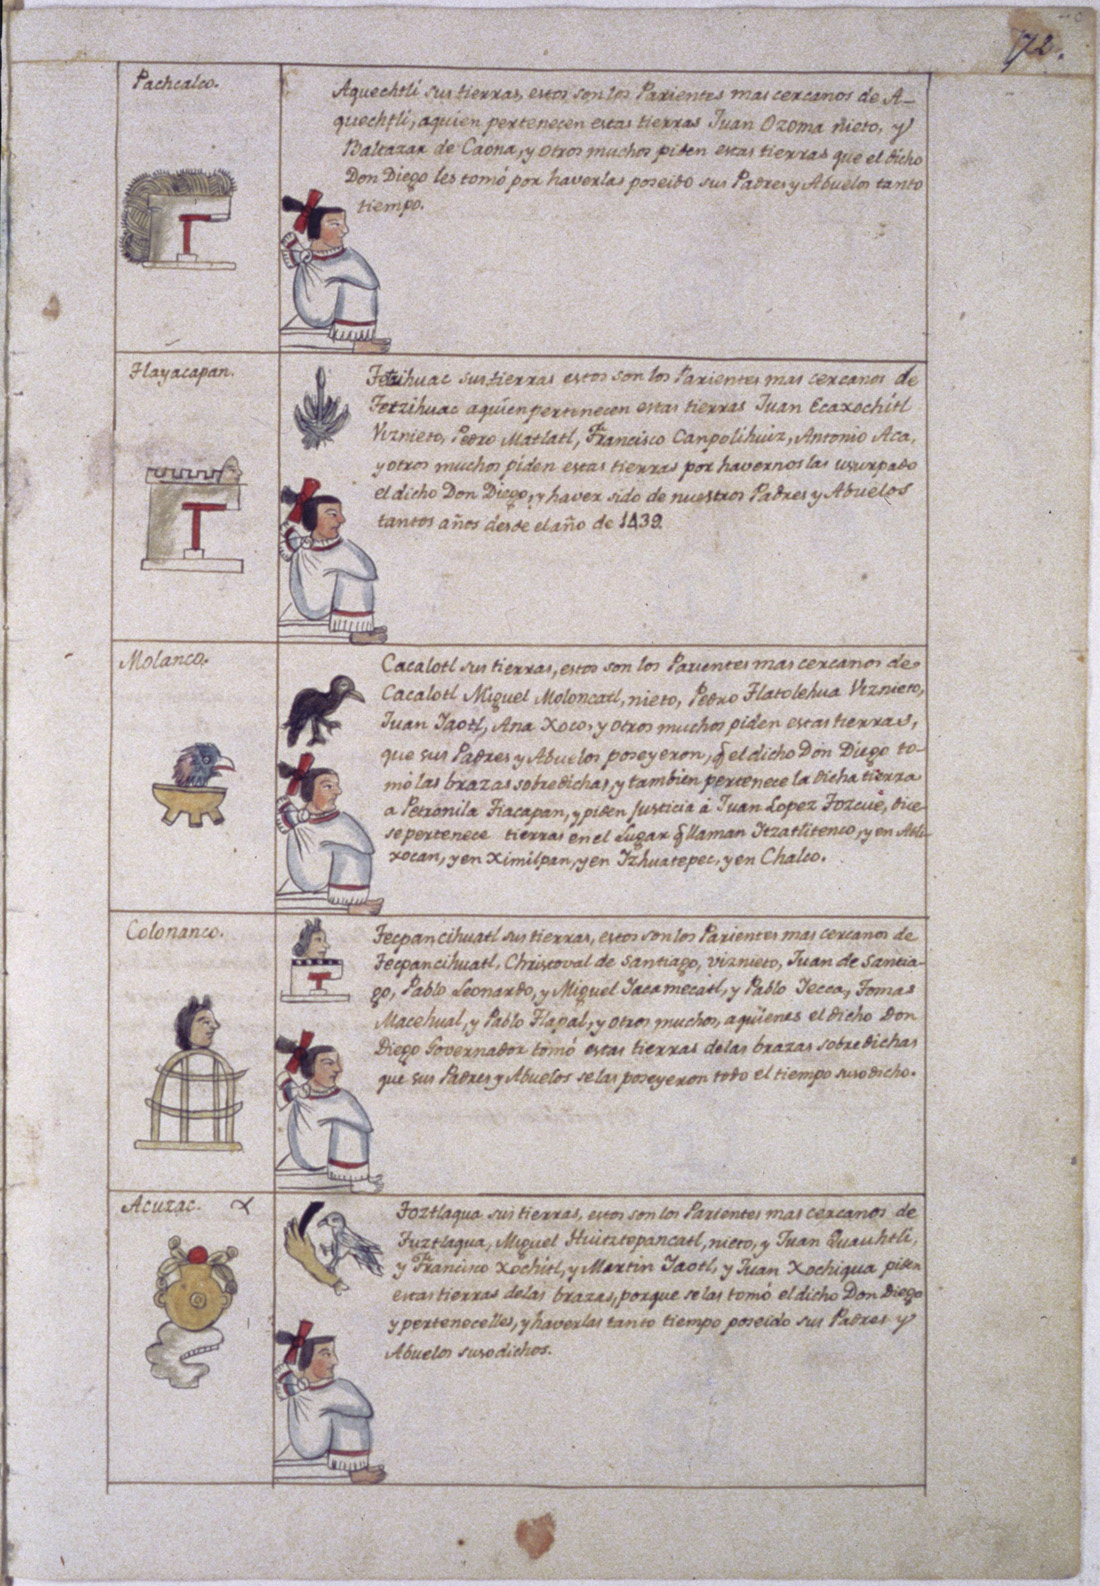 72.
Pachcalco.
Aquechtli sus tierras, estos son los Parientes mas cercanos de A-
quechtli, aquien pertenecen estas tierras Juan Ozoma nieto, y
Baltazar de Caona, y otros muchos piden estas tierras que el dicho
Don Diego les tomó por haverlas poseido sus Padres y Abuelos tanto
tiempo.
Tlayacapan.
Tetzihuac sus tierras estos son los Parientes mas cercanos de
Tetzihuac aquien pertenecen estas tierras Juan Ecaxochitl
Viznieto, Pedro Matlatl, Francisco Canpolihuiz, Antonio Aca,
y otros muchos piden estas tierras por havernoslas usurpado
el dicho Don Diego, y haver sido de nuestros Padres y Abuelos
tantos años desde el año de 1439.
Molanco.
Cacalotl sus tierras, estos son los Parientes mas cercanos de
Cacalotl Miguel Moloncatl, nieto, Pedro Tlatolehua Viznieto,
Juan Yaotl, Ana Xoco, y otros muchos piden estas tierras,
que sus Padres y Abuelos poseyeron, q̃ el dicho Don Diego to-
mó las brazas sobredichas, y tambien pertenece la dicha tierra
a Petronila Tiacapan, y piden Justicia á Juan Lopez Tozcue, dice
se pertenece tierras en el Lugar q̃ llaman Itzatlitenco, y en
xocan, y en Ximilpan, y en Izhuatepec, y en Chalco.
Colonanco.
Tecpancihuatl sus tierras, estos son los Parientes mas cercanos de
Tecpancihuatl, Christoval de Santiago, viznieto, Juan de Santia-
go, Pablo Leonardo, y Miguel Yacamecatl, y Pablo Tecca, Tomas
Macehual, y Pablo Tlapal, y otros muchos, aquienes el dicho Don
Diego Governador tomó estas tierras delas brazas sobredichas
que sus Padres y Abuelos se las poseyeron todo el tiempo susodicho.
Acuzac.
Toztlaqua sus tierras, estos son los Parientes mas cercanos de
Tuztlaqua, Miguel Huitztopancatl, nieto, y Juan Quauhtli,
y Francisco Xochitl, y Martin Yaotl, y Juan Xochiqua piden
estas tierras delas brazas, porque se las tomó el dicho Don Diego
y pertenecelles, y haverlas tanto tiempo poseido sus Padres y
Abuelos susodichos.